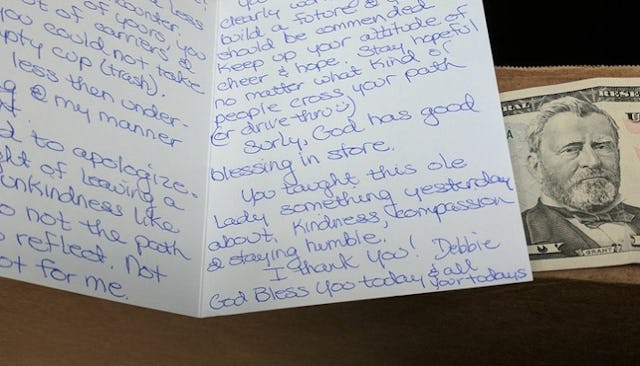 a less
encounter.
of yours, you
of earners &
you could not take
mpty cup (trash).
less then under-
g @ my manner
to apologize.
ght of leaving a
unkindness like
o not the path
reflect. Not
ot for me.
You
clearly
build a future &
should be commended
Keep up your attitude of
cheer & hope. Stay hopeful
no matter what kind of
people cross your path
(or drive thru ☺)
Surly, God has good
blessing in store.
You taught this ole
Lady something yesterday
about, kindness, compassion
& staying humble.
I thank you! Debbie
God Bless you today & all
your todays
GRANT